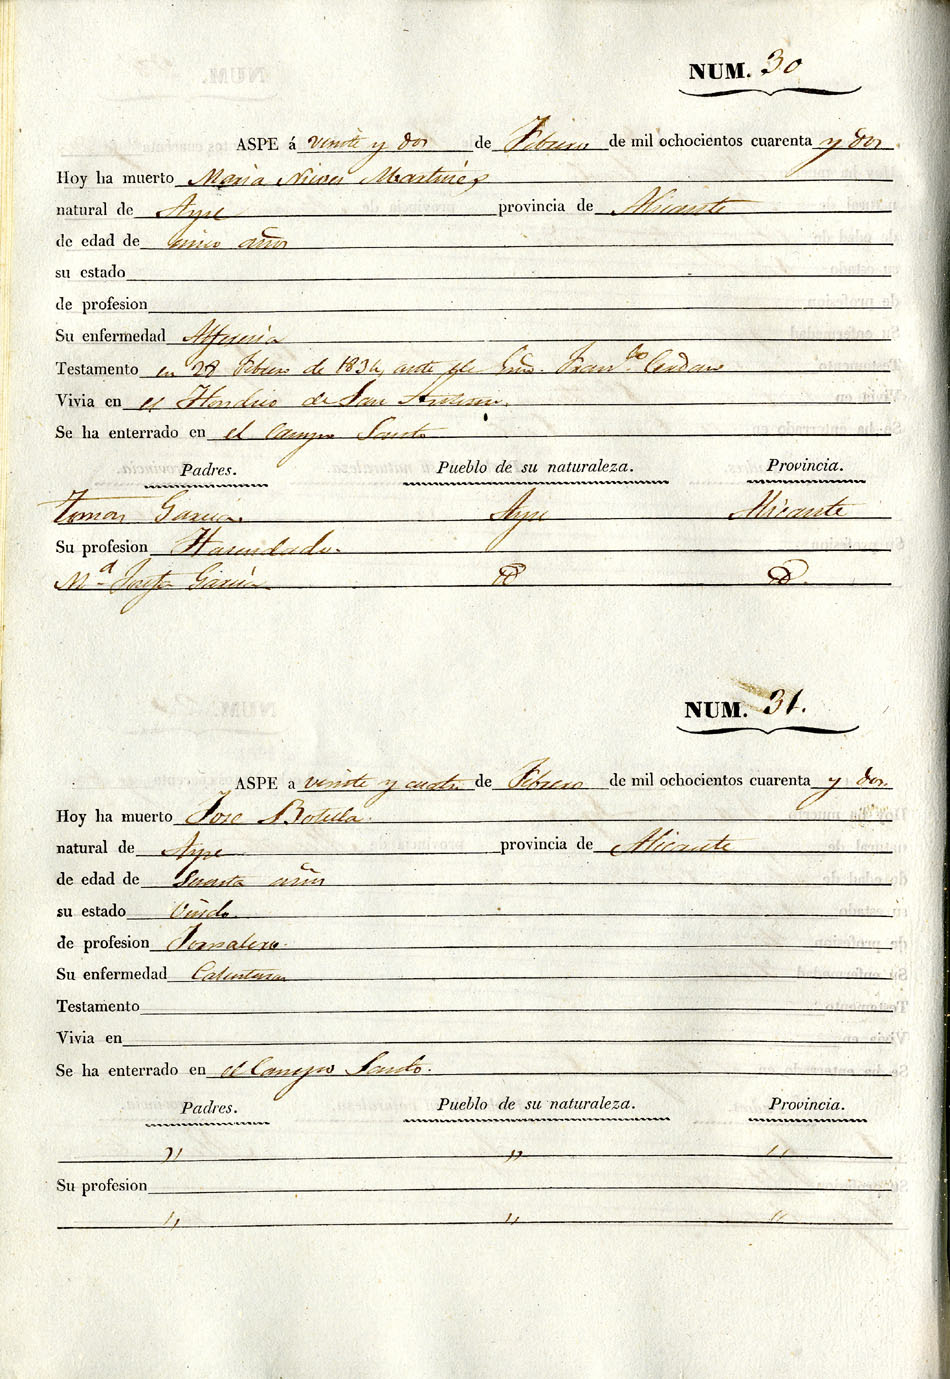 NUM. 30
ASPE á veinte y dos de Febrero de mil ochocientos cuarenta y dos
Hoy ha muerto Maria Nieves Martinez
natural de Aspe provincia de Alicante
de edad de años
su estado
de profesion
Su enfermedad
Testamento en 28 Febrero de 1834, ante el Fran.co Cerdan
Vivia en el de San
Se ha enterrado en el Campo Santo
Padres. Pueblo de su naturaleza. Provincia.
Tomas Garcia. Aspe Alicante
Su profesion Hacendado.
M.a Josefa Garcia
NUM. 31.
ASPE a veinte y cuatro de Febrero de mil ochocientos cuarenta y dos.
Hoy ha muerto Jose Botella.
natural de Aspe provincia de Alicante
de edad de años
su estado Viudo.
de profesion Jornalero.
Su enfermedad Calenturas
Testamento
Vivia en
Se ha enterrado en el Campo Santo.
Padres. Pueblo de su naturaleza. Provincia.
" " "
Su profesion
" " "